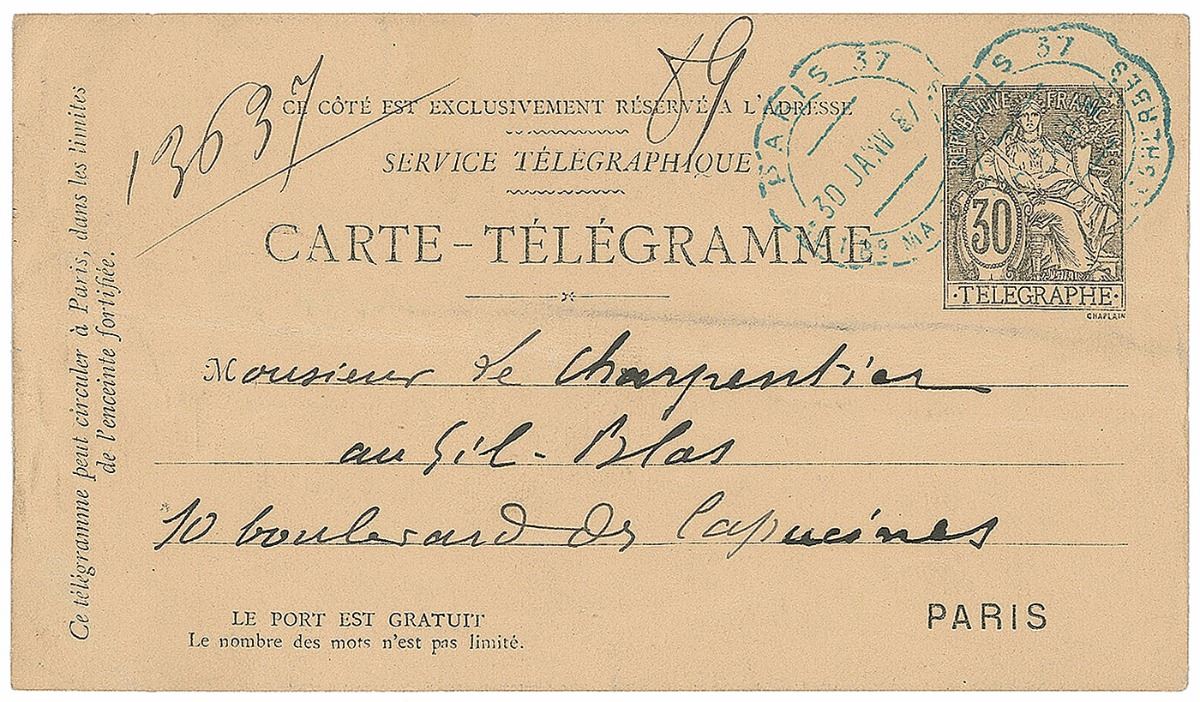 13637
89
CE CÔTÉ EST EXCLUSIVEMENT RÉSERVÉ A L'ADRESSE
SERVICE TÉLÉGRAPHIQUE
CARTE-TÉLÉGRAMME
PARIS 37
30 JANV 87
PARIS 37
REPUBLIQUE FRANCAISE
30
·TELEGRAPHE·
CHAPLAIN
Monsieur Le Charpentier
au Gil-Blas
10 boulevard des Capucines
PARIS
LE PORT EST GRATUIT
Le nombre des mots n'est pas limité.
Ce télégramme peut circuler à Paris, dans les limites
de l'enceinte fortifiée.